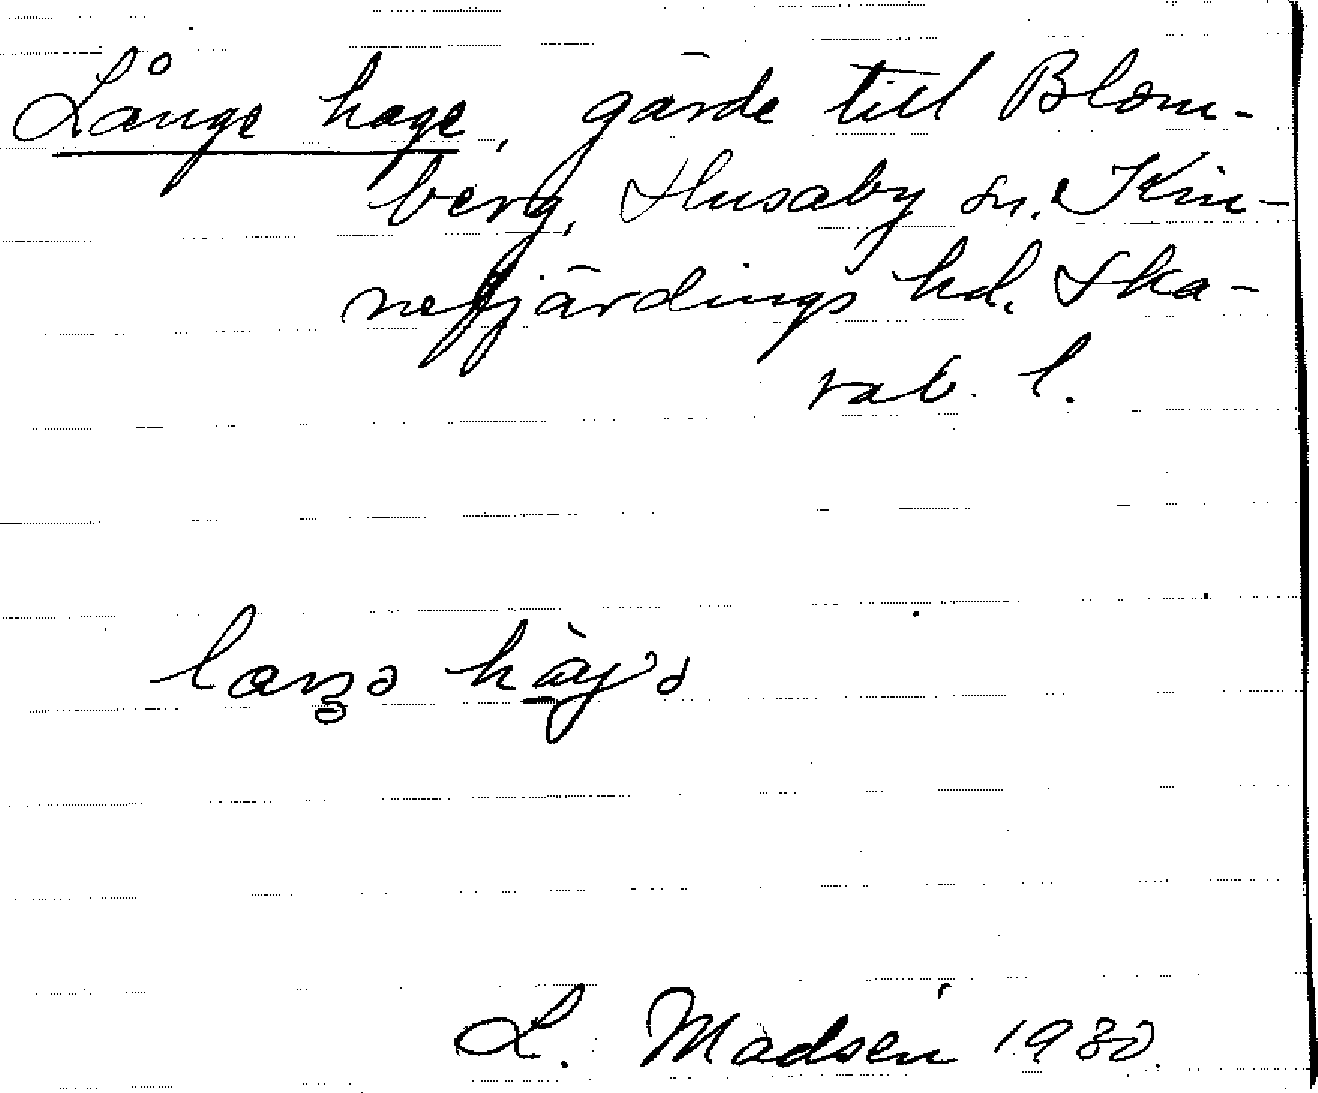 Långe hage, gärde till Blom-
berg, Husaby sn. Kin-
nefjärdings hd. Ska-
rab. l.
L. Madsen 1930.